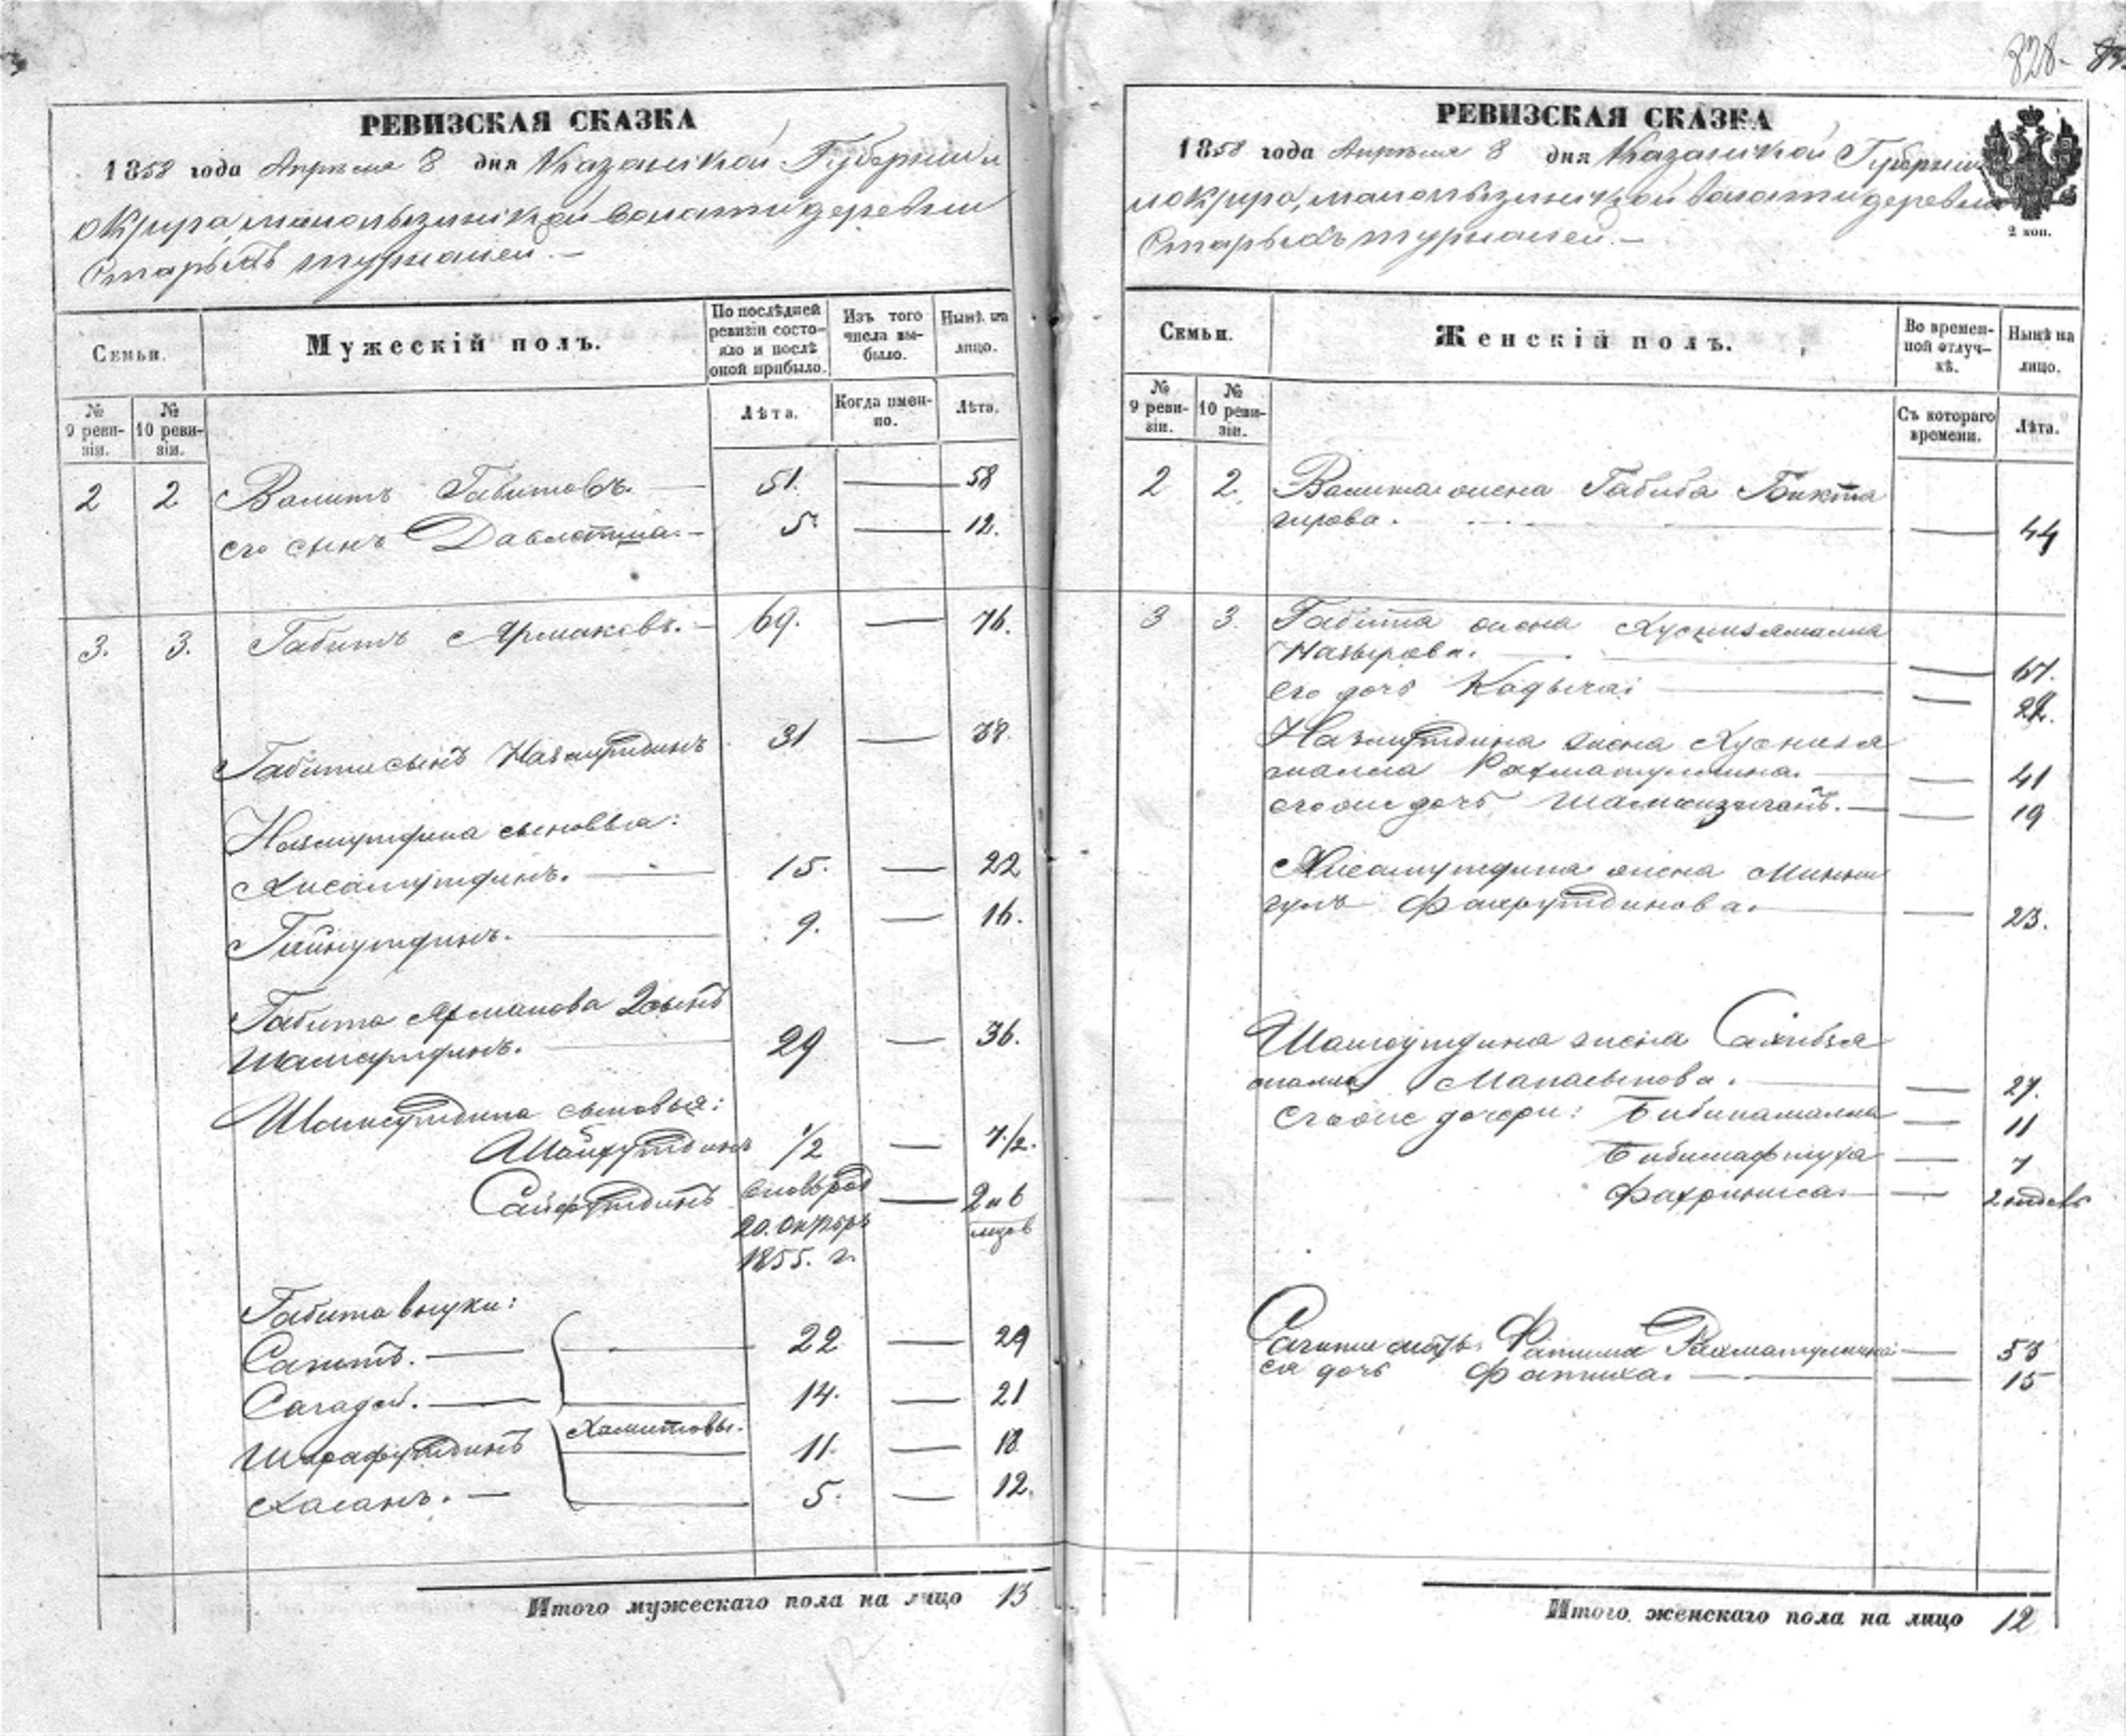 828.
РЕВИЗСКАЯ СКАЗКА
1858 года Апреля 8 дня Казанской Губернии
округа, волости деревни
Старыхъ
Семьи.
Мужескій полъ.
По послѣдней ревизіи состояло и послѣ оной прибыло.
Изъ того числа выбыло.
Нынѣ на лицо.
№ 9 ревизіи.
№ 10 ревизіи.
Лѣта.
Когда именно.
Лѣта.
2 2 Валитъ Габитовъ. — 51. — 58
его сынъ Давлетша. — 5. — 12.
3. 3. Габитъ Ярмаковъ. — 69. — 76.
Габита сынъ Назмутдинъ 31 — 38.
Назмутдина сыновья:
Хисамутдинъ. — 15. — 22
Гайнутдинъ. — 9. — 16.
Габита Ярмакова 2 сынъ
Шамсутдинъ. — 29 — 36.
Шамсутдина сыновья:
Шайхутдинъ 1/2 — 7 1/2.
Сайфутдинъ вновь род — 2 и 6
20. Октябр мцов
1855. г.
Габита внуки:
Сагитъ. — 22 — 29
Сагадей. — 14. — 21
Хамитовы.
Шарафутдинъ 11. — 18
Хасанъ. — 5. — 12.
Итого мужескаго пола на лицо 13
РЕВИЗСКАЯ СКАЗКА
1858 года Апреля 8 дня Казанской Губернии
округа, волости деревни
Старыхъ
2 коп.
Семьи.
Женскій полъ.
Во временной отлучкѣ.
Нынѣ на лицо.
№ 9 ревизіи.
№ 10 ревизіи.
Съ котораго времени.
Лѣта.
2 2. Валита жена Габиба Бикта
гирова. — 44
3 3. Габита жена Хуснизямална
Назырова. — 67.
его дочь Кадыча — 22.
Назмутдина жена Хусниза
мална Рахматуллина. — 41
его же дочь — 19
Хисамутдина жена Минни
гуль Фахрутдинова. — 23.
Шамсутдина жена Сахибзя
мална — 27.
его же дочери: Бибикамална — 11
— 7
Фахриниса. — 2 недель
Сагита мать Фатима Рахматуллина — 53
ея дочь Фатиха. — 15
Итого женскаго пола на лицо 12